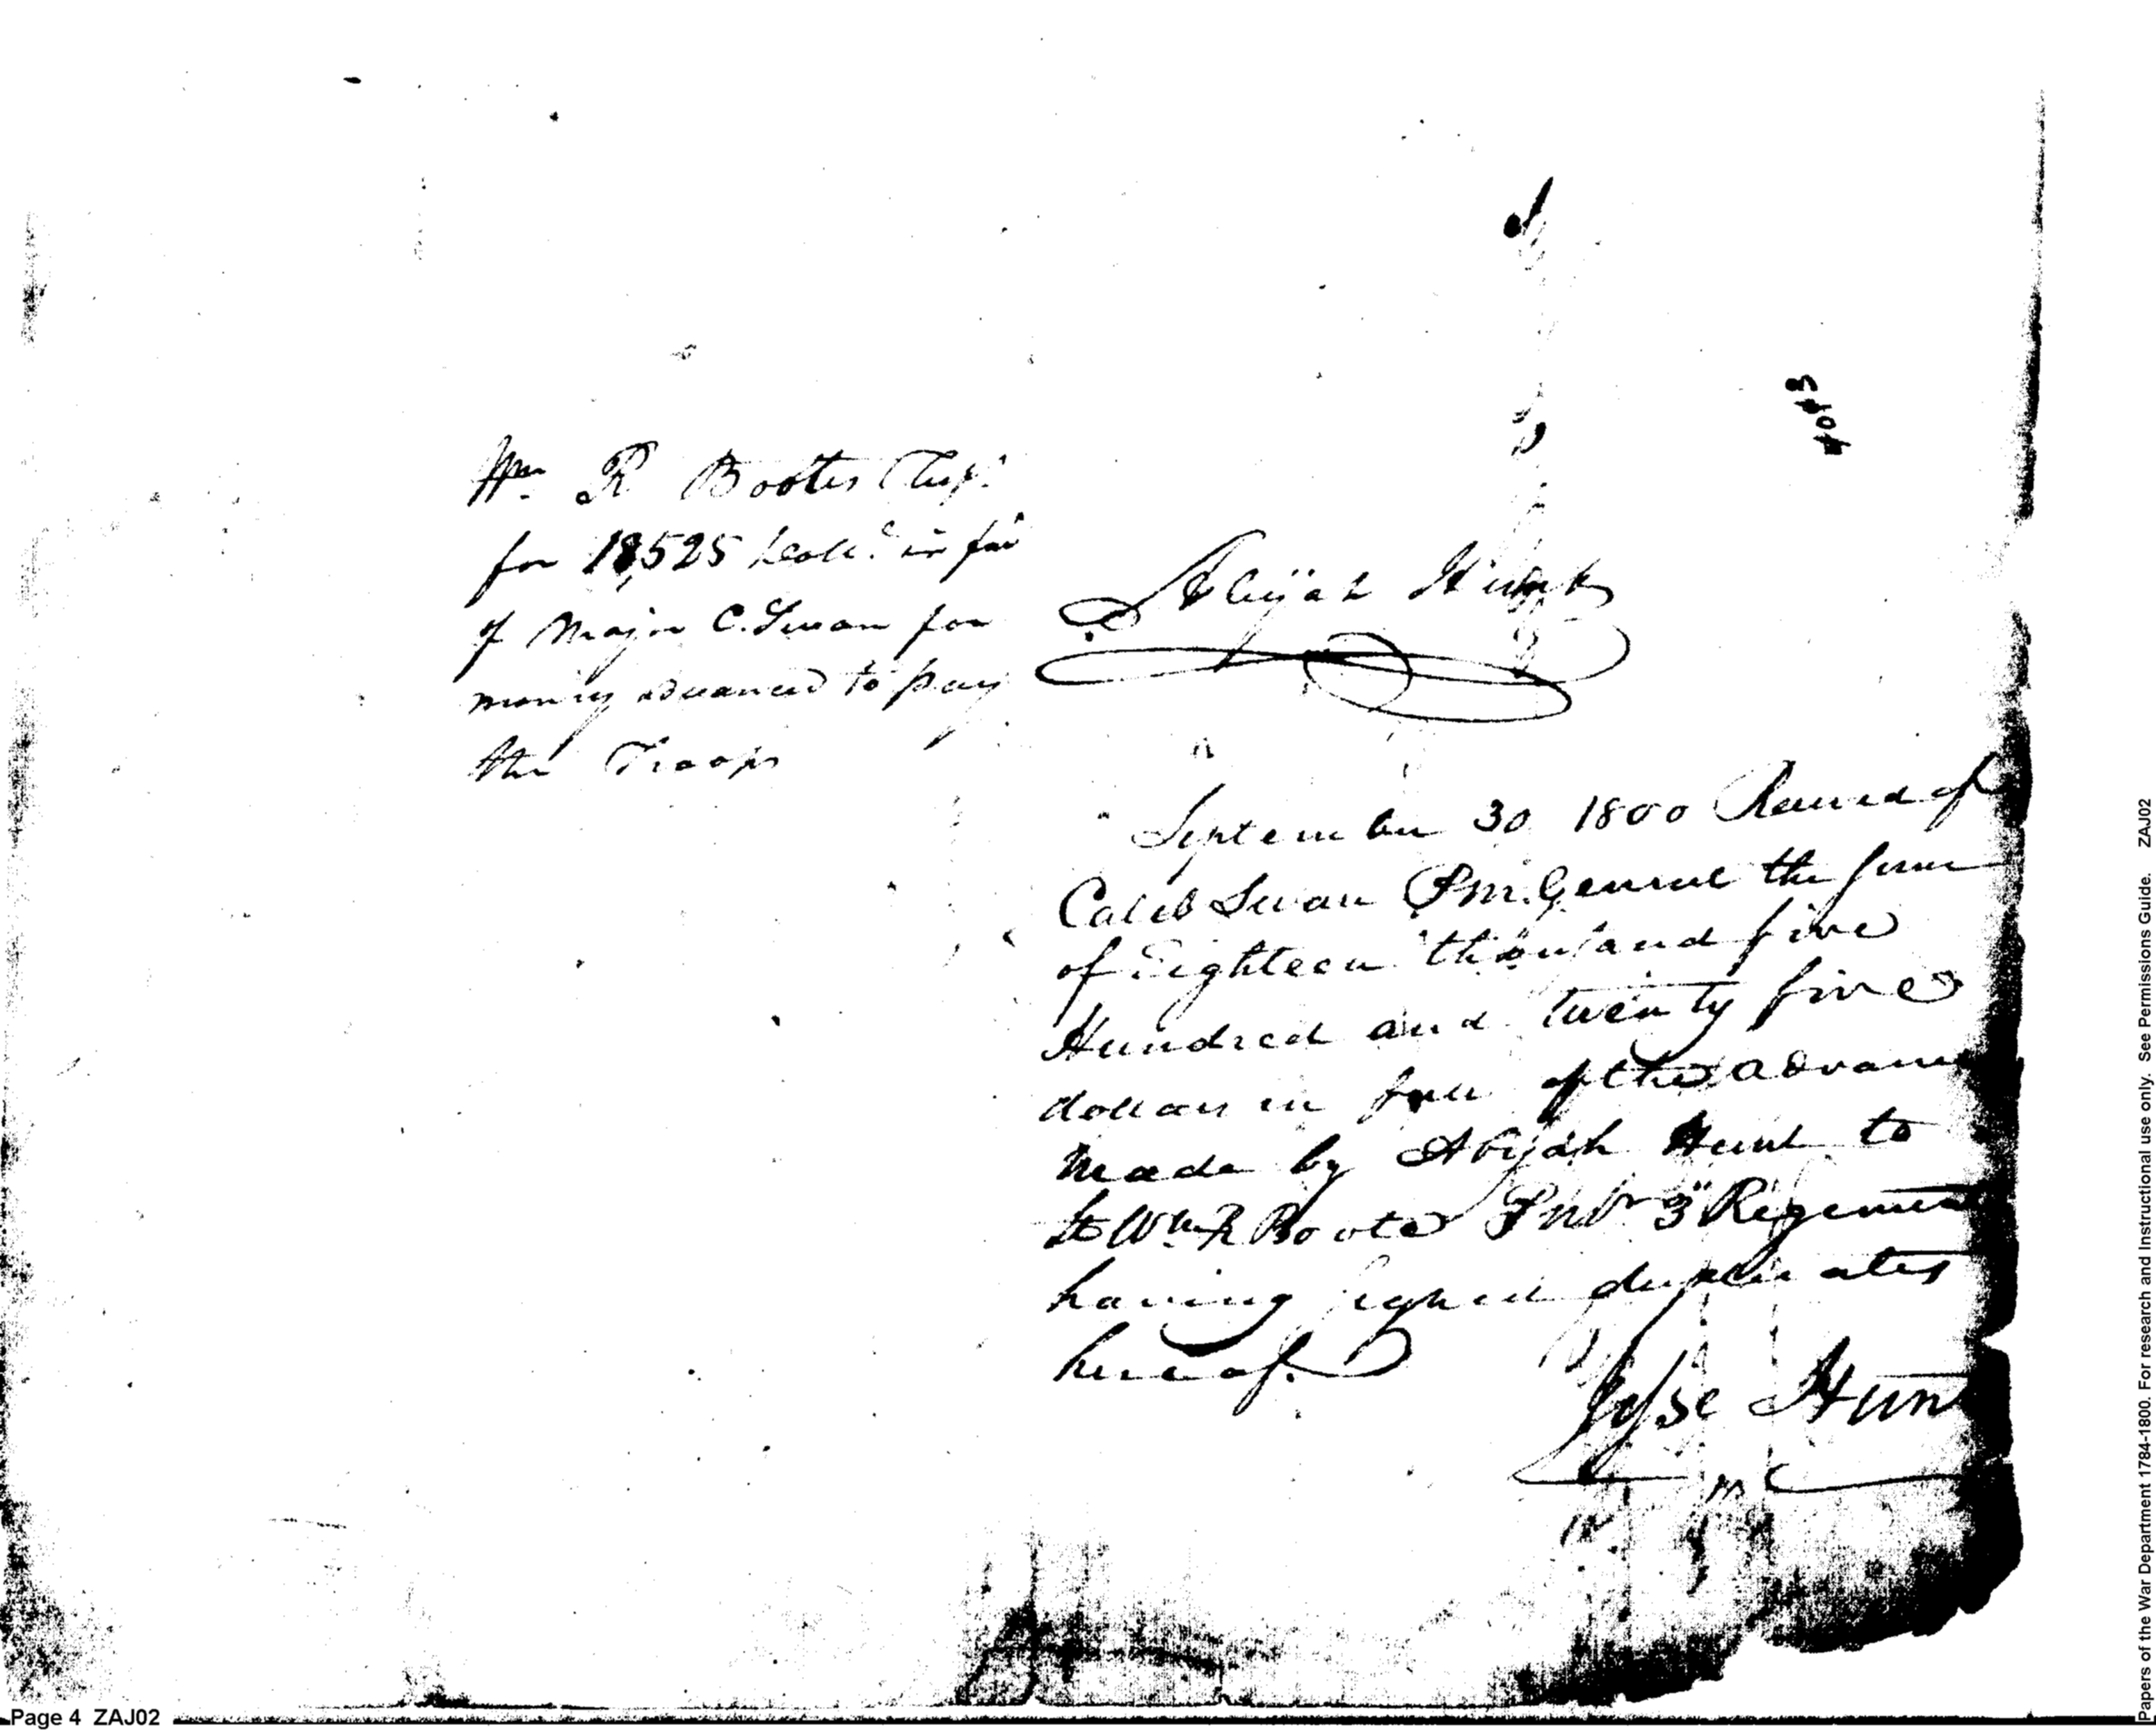 Wm R Bootes
for 18,525 Dolls. in full
of Major C. Swan for
money advanced to pay
the Troops
Abijah Hunt
September 30 1800 Received of
Caleb Swan P.M. General the sum
of Eighteen thousand five
Hundred and twenty five
dollars in full of the advance
made by Abijah Hunt to
Lt Wm R Boote PMr 3d Regiment
having signed duplicates
hereof.
Jesse Hunt
Page 4 ZAJ02
Papers of the War Department 1784-1800. For research and instructional use only. See Permissions Guide. ZAJ02